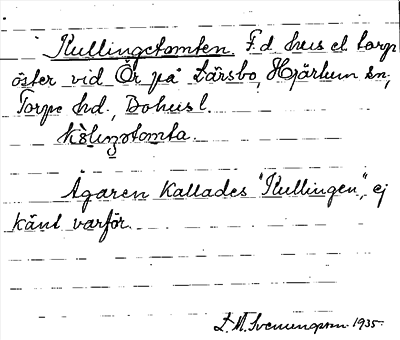 Kullingetomten. F.d. hus el. torp
öster vid Ör på Lärsbo, Hjärtum sn,
Torpe hd., Bohusl.
Ägaren kallades "Kullingen", ej
känt varför.
L. M. Svenungsson 1935.